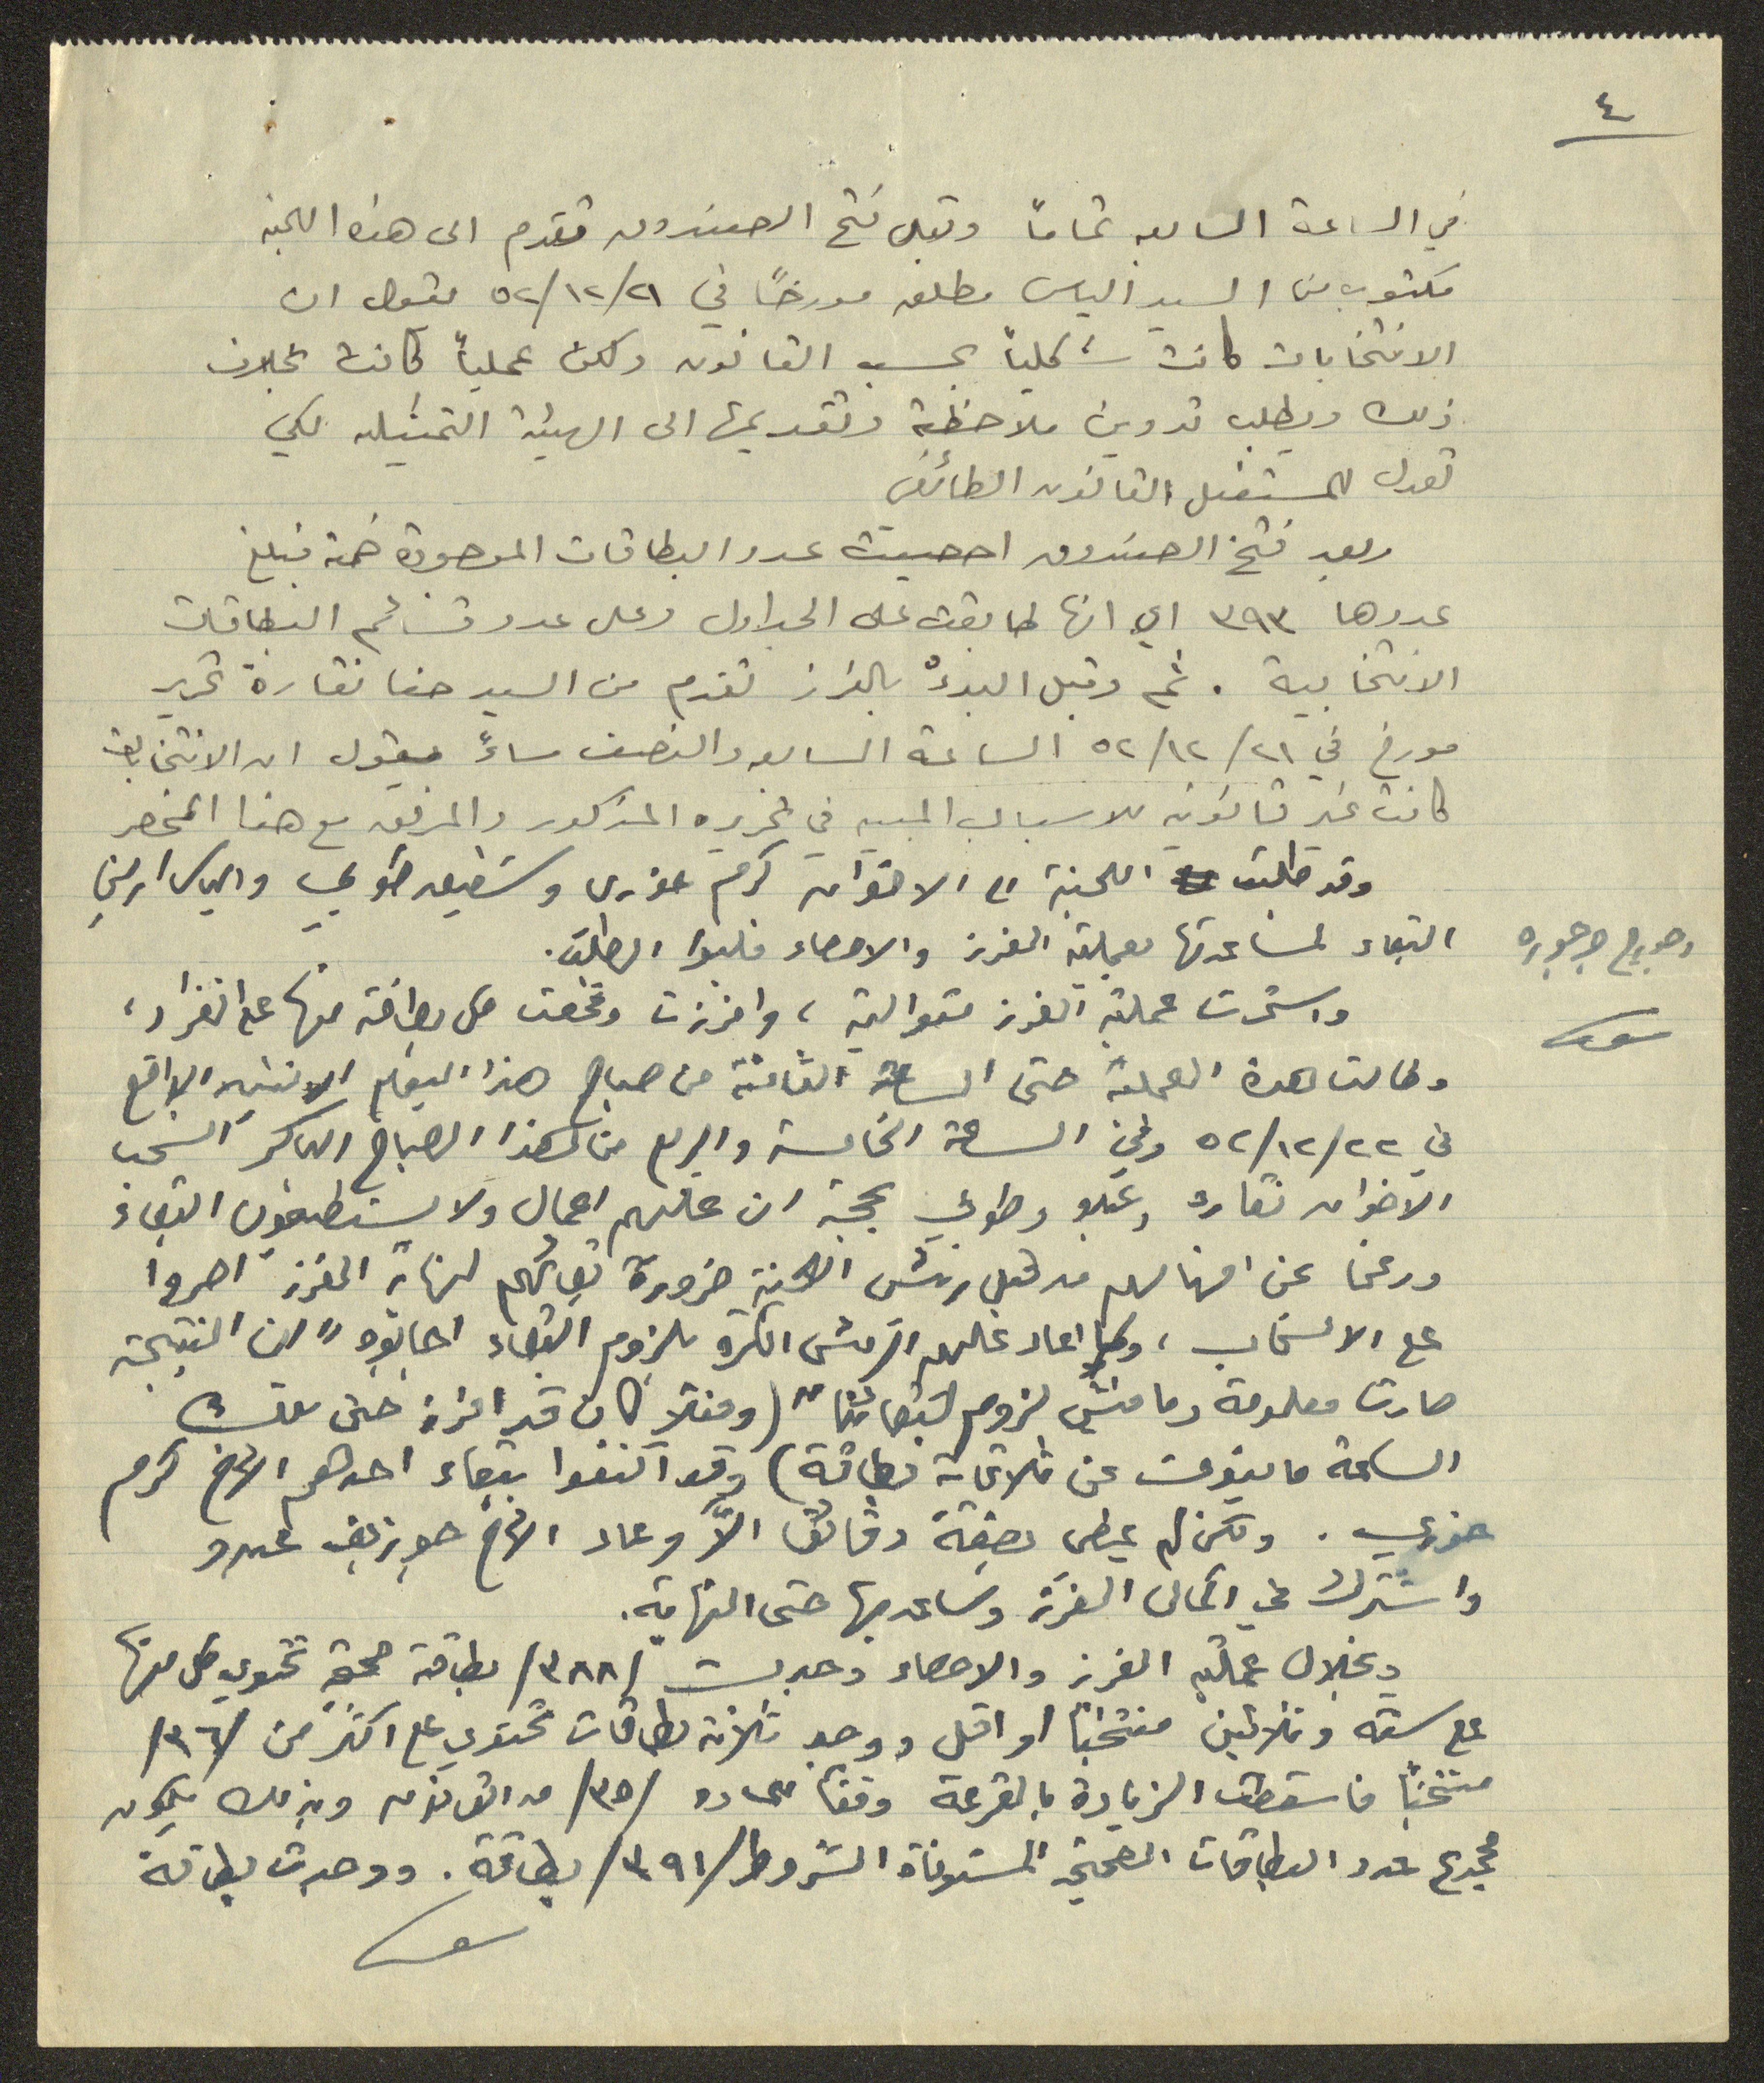 ٤
في الساعة السابعه تماماً وقبل فتح الصندوق تقدم الى هذه اللجنه
مكتوب من السيد الياس مطلق مورخاً في ٥٢/١٢/٢١ يقول ان
الانتخابات كانت شكلياً بحسب القانون ولكن عملياً كانت بخلاف
ذلك ويطلب تدوين ملاحظة وتقديمها الى الهيئة التمثيليه لكي
تعدل للمستقبل القانون الطائفي
وبعد فتح الصندوق احصيت عدد البطاقات الموجودة ضمنه فبلغ
عددها ٣٩٣ اي انها طابقت على الجداول وعلى عدد قسائم البطاقات
الانتخابية . ثم وقبل البدء بالفرز تقدم من السيد حنا نقارة تحرير
مورخ في ٥٢/١٢/٢١ الساعة السابعه والنصف مساءً يقول ان الانتخابات
كانت غير قانونيه للاسباب المبينه في تحريره المذكور والمرفق مع هذا المحضر
وقد طلبت اللجنة من الاخوان كرم خوري وشفيق طوبي والياس
البقاء لمساعدتها بعملية الفرز والاحصاء فلبوا الطلب.
وجورج جرجوره
واستمرت عملية الفرز متوالية ، وافرزت وفحصت كل بطاقة منها على انفراد ،
وطالت هذه العملية حتى الساعة الثامنة من صباح هذا اليوم الاثنين الواقع
في ٥٢/١٢/٢٢ وفي الساعة الخامسة والربع من هذا الصباح الباكر انسحب
الاخوان نقاره وعبدو وطوبي بحجة ان عليهم اعمال ولا يستطيعون البقاء
ورغما عن افهامهم من قبل رئيس اللجنة ضرورة بقائهم لنهاية الفرز اصروا
على الانسحاب ، وكما اعاد عليهم الرئيس الكرة بلزوم البقاء اجابوه " ان النتيجة
صارت معلومة وما فيش لزوم لبقائنا " (وفعلا كان قد افرز حتى تلك
الساعة ما ينوف عن ثلاثماية بطاقة) وقد اكتفوا ببقاء احدهم الاخ كرم
خوري . ولكن لم يمض بضعة دقائق الاّ وعاد الاخ جوزيف عبدو
واشترك في اكمال الفرز وساعد بها حتى النهاية.
وبخلال عملية الفرز والاحصاء وجدت /٣٨٨/ بطاقة صحيحة تحتوي كل منها
على سته وثلاثين منتخباً او اقل ووجد ثلاثة بطاقات تحتوي على اكثر من /٣٦/
منتخباً فاسقطت الزيادة بالقرعة وفقاً للماده /٣٥/ من القانون وبذلك يكون
مجموع عدد البطاقات الصحيحه المستوفاة الشروط /٣٩١/ بطاقة . ووجدت بطاقة